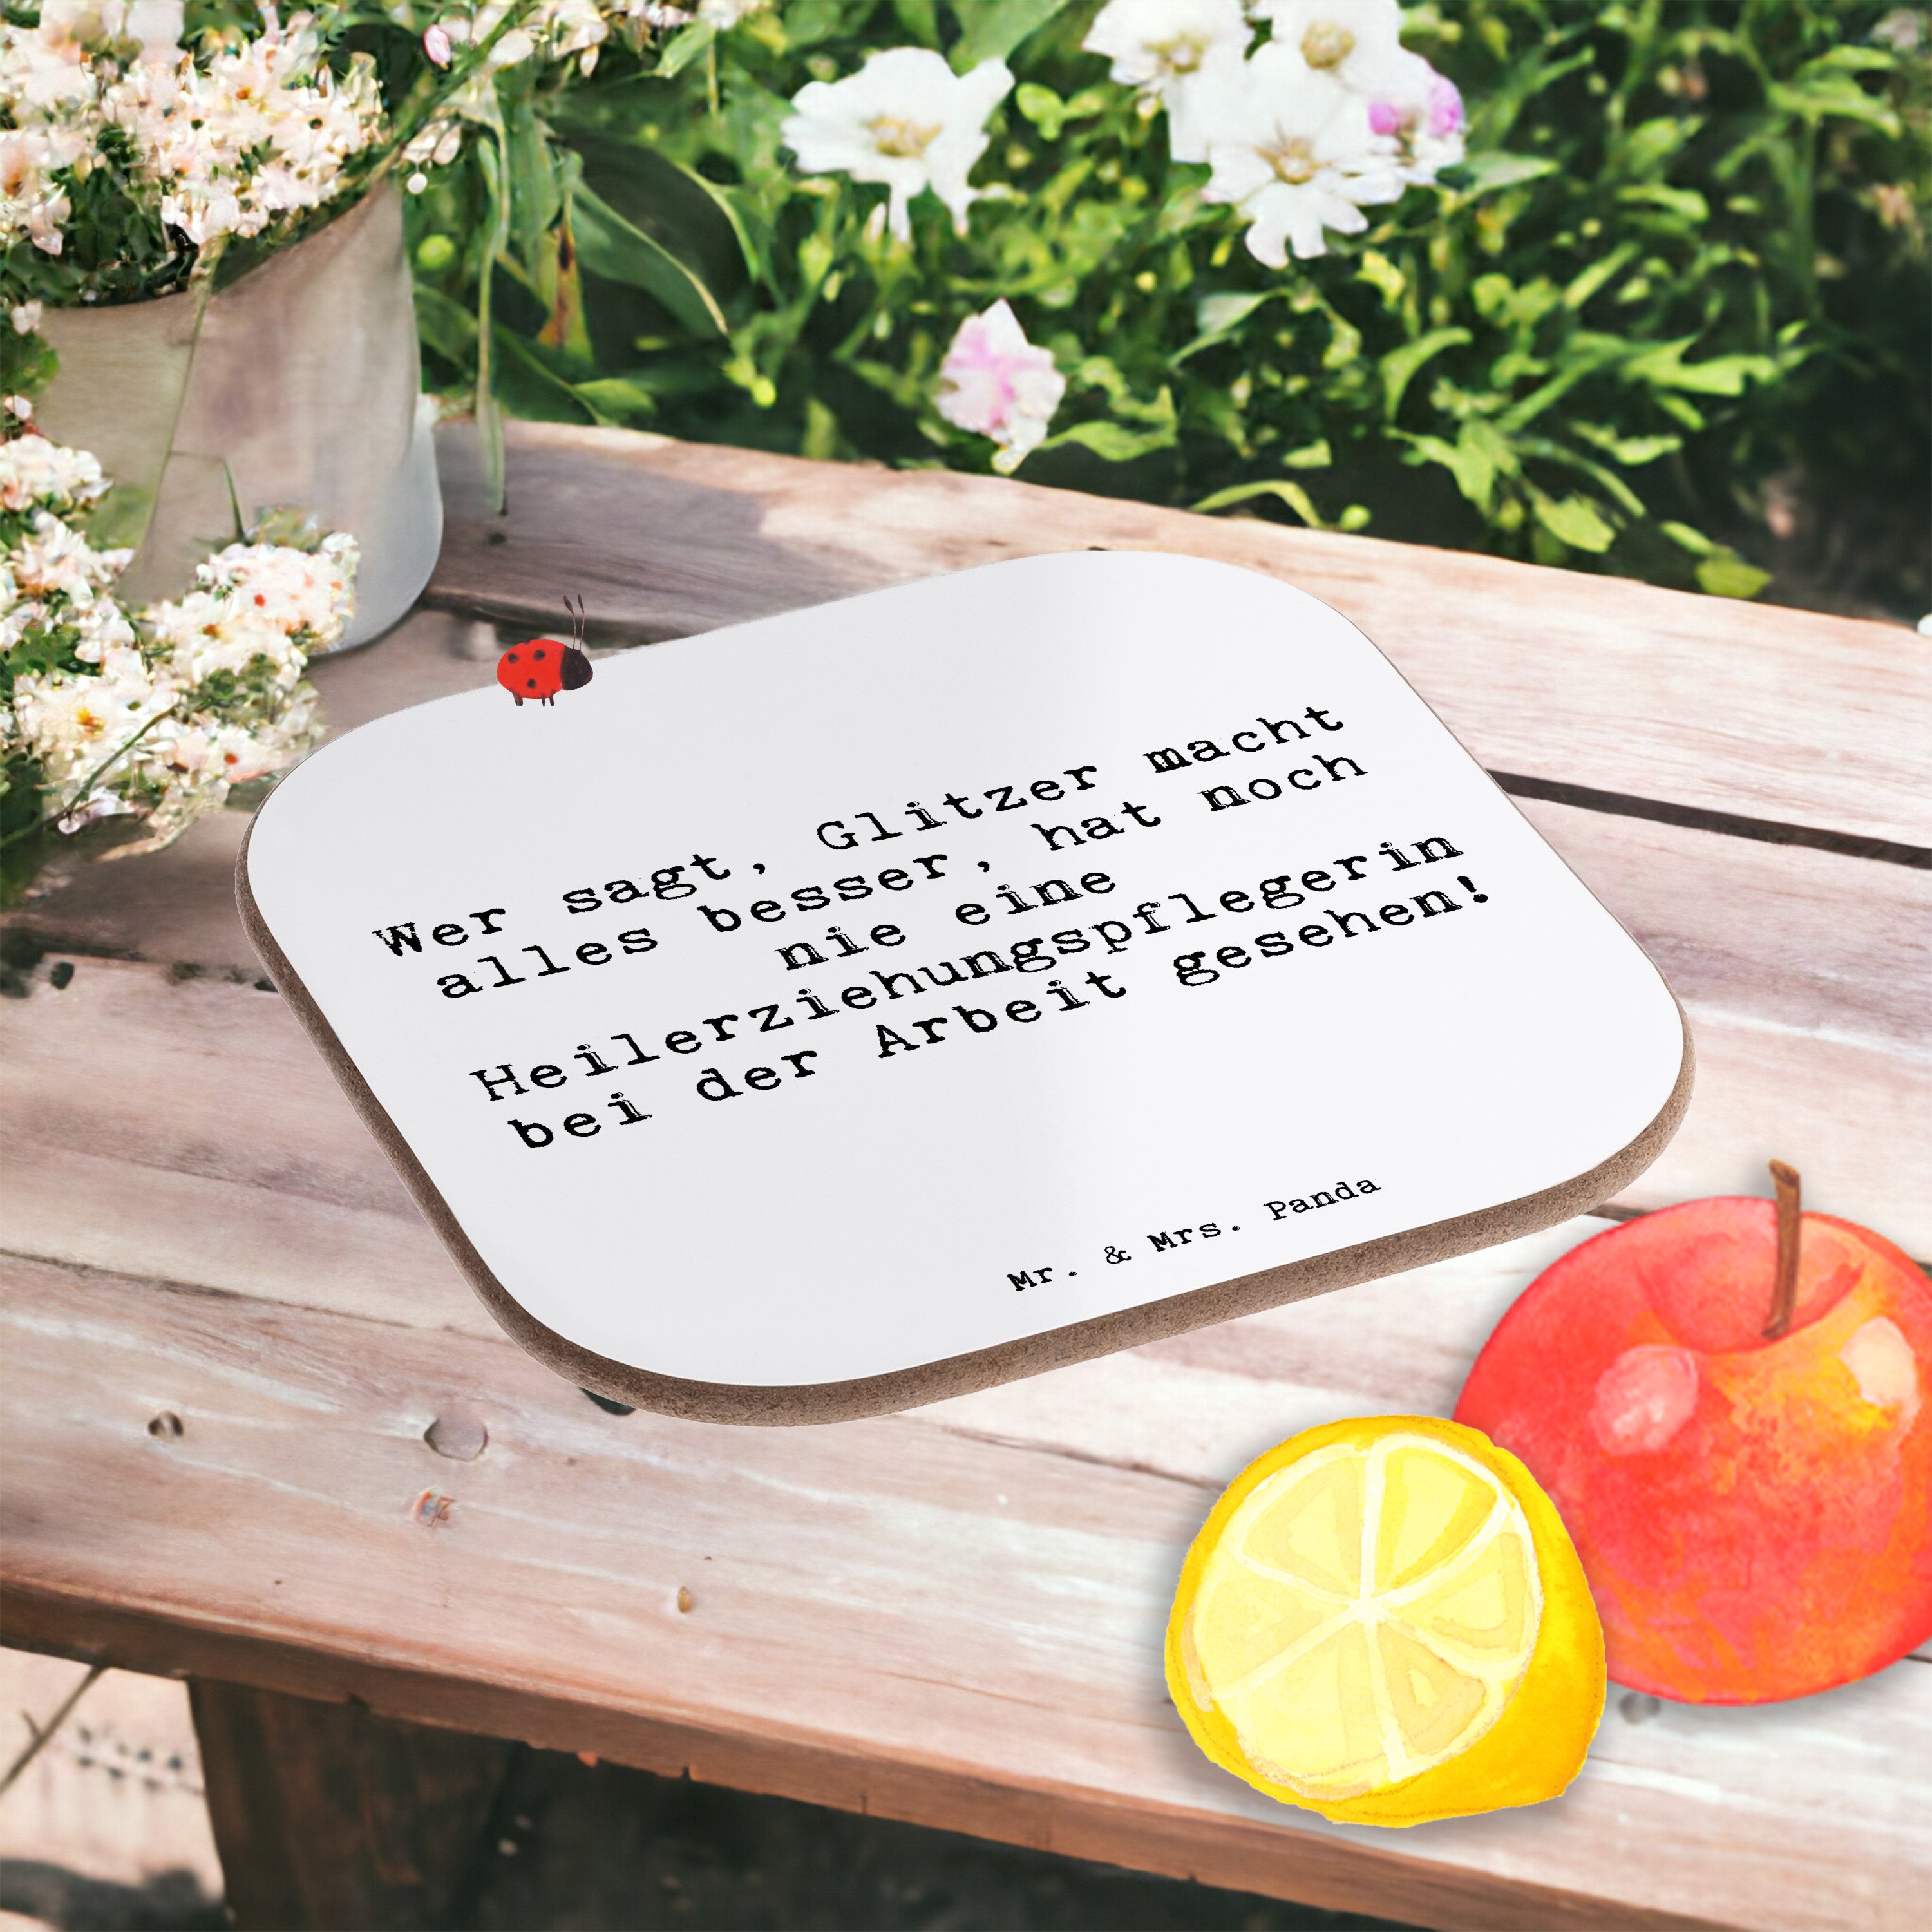 Wer sagt, Glitzer macht
alles besser, hat noch
nie eine
Heilerziehungspflegerin
bei der Arbeit gesehen!
Mr. & Mrs. Panda